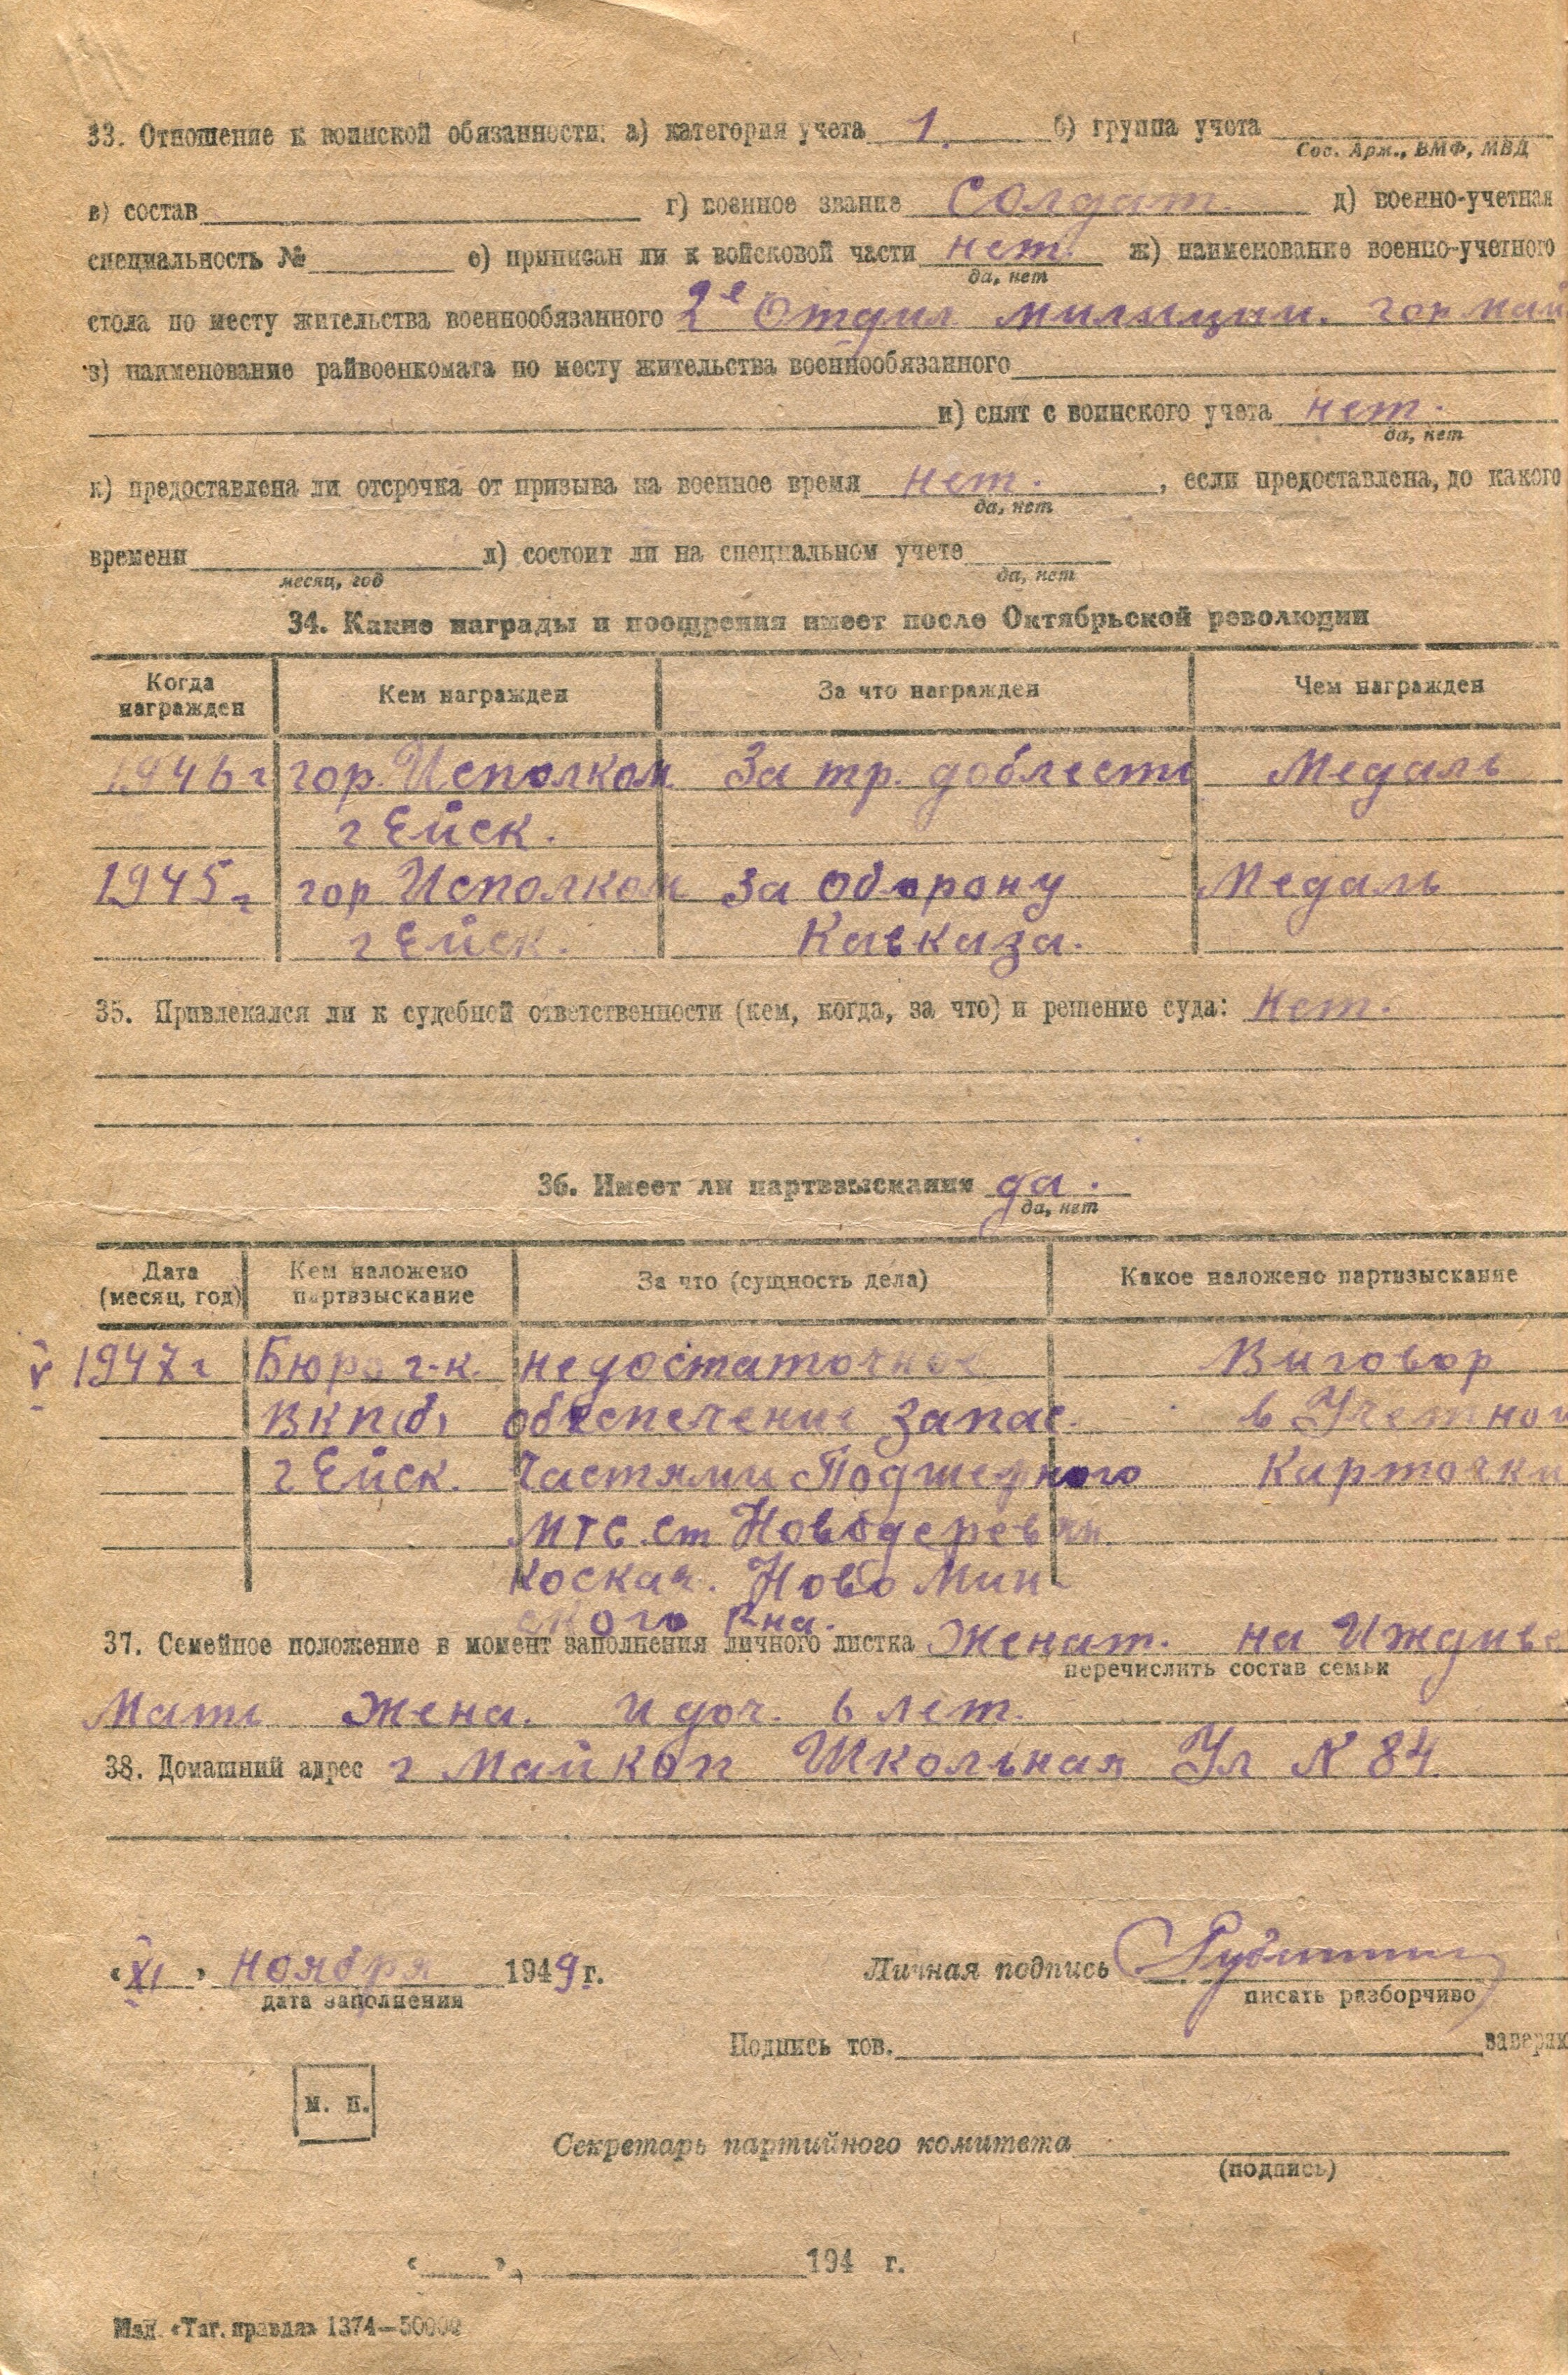 33. Отношение к воинской обязанности: а) категория учета 1. б) группа учета
Сов. Арм., ВМФ, МВД
в) состав г) военное звание Солдат. д) военно-учетная
специальность № е) приписан ли к войсковой части нет. ж) наименование военно-учетного
да, нет
стола по месту жительства военнообязанного 2е Отдил милыции. гор май
з) наименование райвоенкомата по месту жительства военнообязанного
и) снят с воинского учета нет.
да, нет
к) предоставлена ли отсрочка от призыва на военное время нет. , если предоставлена, до какого
да, нет
времени л) состоит ли на специальном учете
месяц, год да, нет
34. Какие награды и поощрения имеет после Октябрьской революции
Когда награжден Кем награжден За что награжден Чем награжден
1946 г гор. Исполком За тр. доблесть Медаль
г Ейск.
1945 г гор Исполком За Оборону Медаль
г Ейск. Кавказа.
35. Привлекался ли к судебной ответственности (кем, когда, за что) и решение суда: Нет.
36. Имеет ли партвзыскания да.
да, нет
Дата (месяц, год) Кем наложено партвзыскание За что (сущность дела) Какое наложено партвзыскание
V 1947 г Бюро г.к. недостаточное Виговор
ВКП(б) обеспечение запас. в Учетной
г Ейск. Частями Подшефного Карточки
МТС. ст Новодеревян
коская. Ново Мин-
ского Р-на.
37. Семейное положение в момент заполнения личного листка Женат. на Иждиве
перечислить состав семьи
Мать Жена. и доч. 6 лет.
38. Домашний адрес г Майкоп Школьная Ул N 84
«XI» ноября 1949 г. Личная подпись
дата заполнения писать разборчиво
Подпись тов. заверяю
м. п.
Секретарь партийного комитета
(подпись)
« » 194 г.
Изд. «Таг. правда» 1374—50000